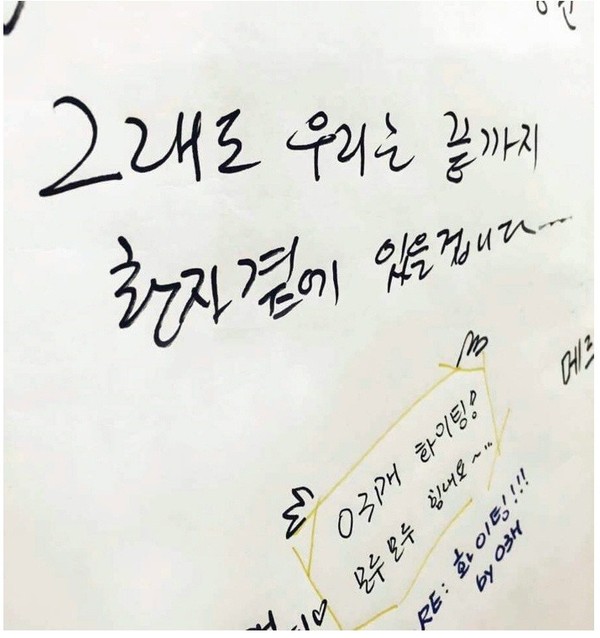 그래도 우리는 끝까지
환자곁에 있을겁니다...
메르
화이팅!
모두모두 힘내요~
RE: 화이팅!!!
by